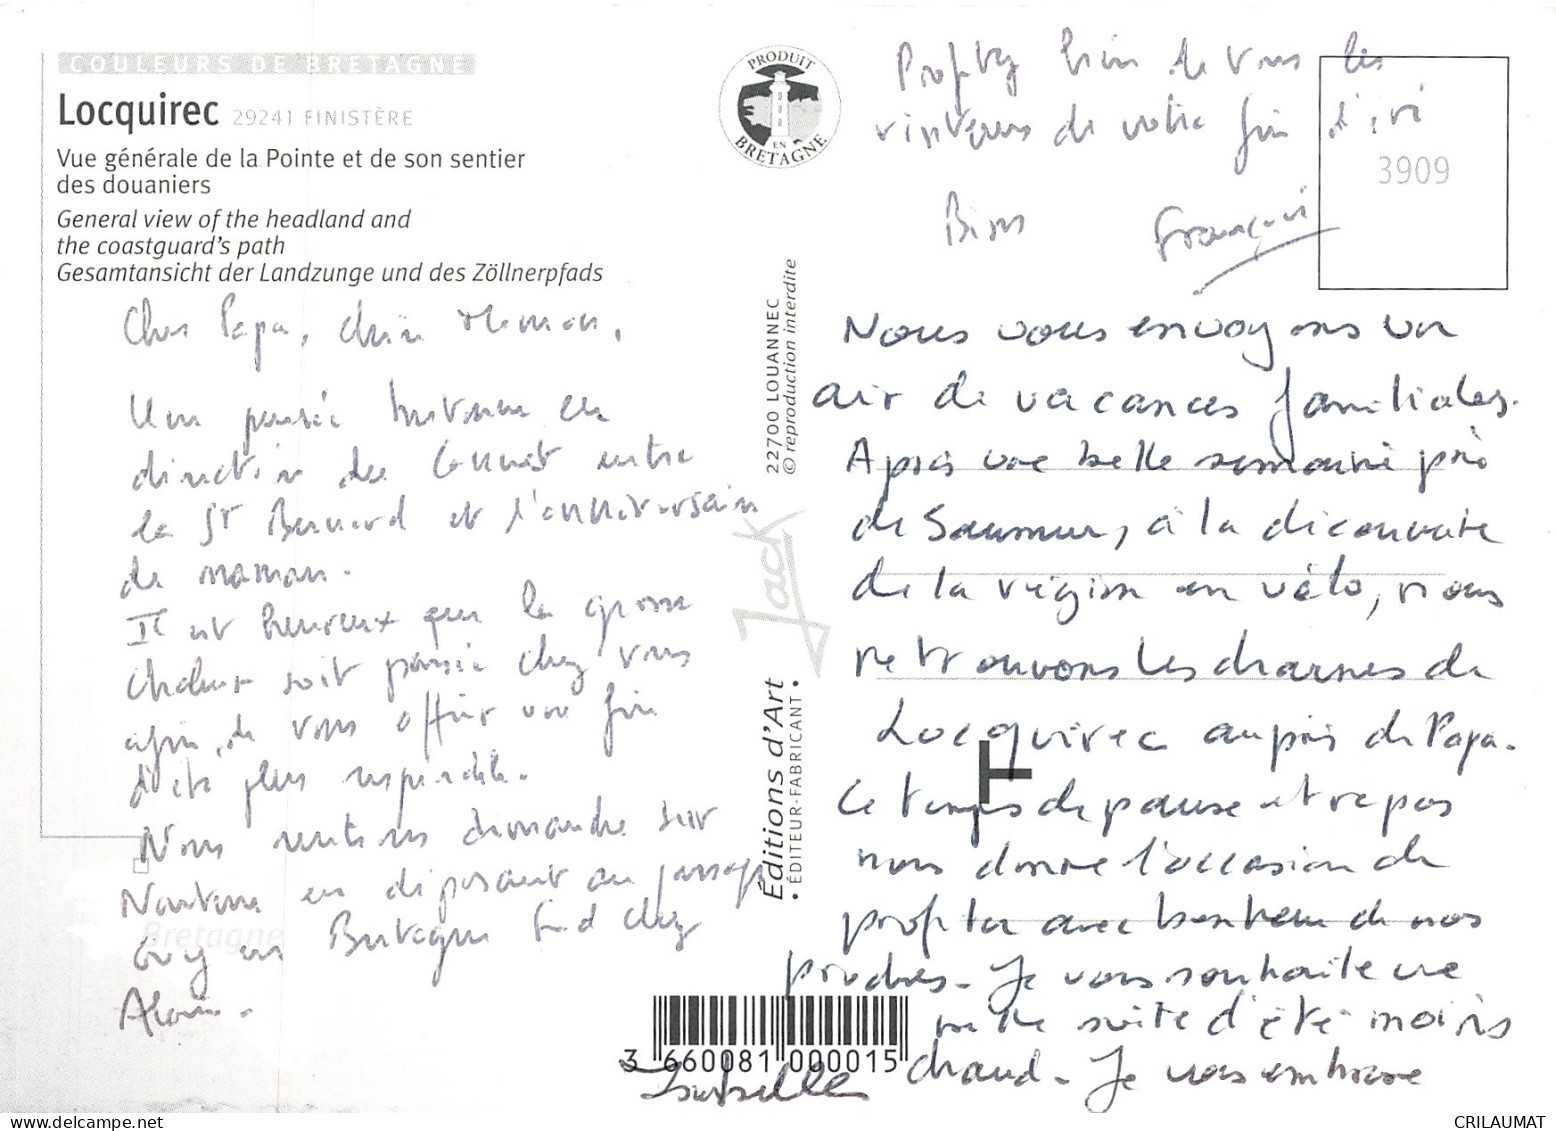 COULEURS DE BRETAGNE
Locquirec 29241 FINISTÈRE
Vue générale de la Pointe et de son sentier
des douaniers
General view of the headland and
the coastguard's path
Gesamtansicht der Landzunge und des Zöllnerpfads
Cher Papa, chère Maman,
Une pensée bretonne en
direction du entre
la St Bernard et l'anniversaire
de maman.
Il est heureux que la grosse
chaleur soit passée chez vous
afin de vous offrir une fin
d'été plus respirable.
Nous rentrons dimanche sur
Nanterre en déposant au passage
Guy en Bretagne Sud chez
Alain.
PRODUIT
EN
BRETAGNE
22700 LOUANNEC
© reproduction interdite
Jack
Éditions d'Art
• ÉDITEUR-FABRICANT •
Bretagne
3 660081 000015
Profitez bien de tous les
visiteurs de votre fin d'été
Bises François
3909
Nous vous envoyons un
air de vacances familiales.
Après une belle semaine près
de Saumur, à la découverte
de la région en vélo, nous
retrouvons les charmes de
Locquirec auprès de Papa.
Ce temps de pause et repos
nous donne l'occasion de
profiter avec bonheur de nos
proches. Je vous souhaite une
suite d'été moins
chaud. Je vous embrasse
Isabelle
T
CRILAUMAT